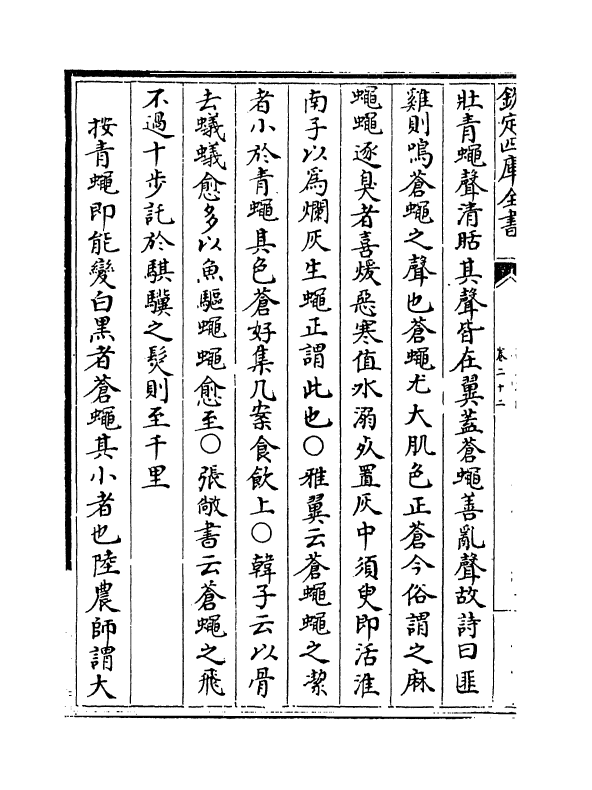 欽定四庫全書
卷二十二
壯青蠅聲清聒其聲皆在翼蓋蒼蠅善亂聲故詩曰匪
雞則鳴蒼蠅之聲也蒼蠅尤大肌色正蒼今俗謂之麻
蠅蠅逐臭者喜煖惡寒值水溺死置灰中須臾即活淮
南子以為爛灰生蠅正謂此也○雅翼云蒼蠅蠅之潔
者小於青蠅其色蒼好集几案食飲上○韓子云以骨
去蟻蟻愈多以魚驅蠅蠅愈至○張敞書云蒼蠅之飛
不過十步託於騏驥之髮則至千里
按青蠅即能變白黑者蒼蠅其小者也陸農師謂大